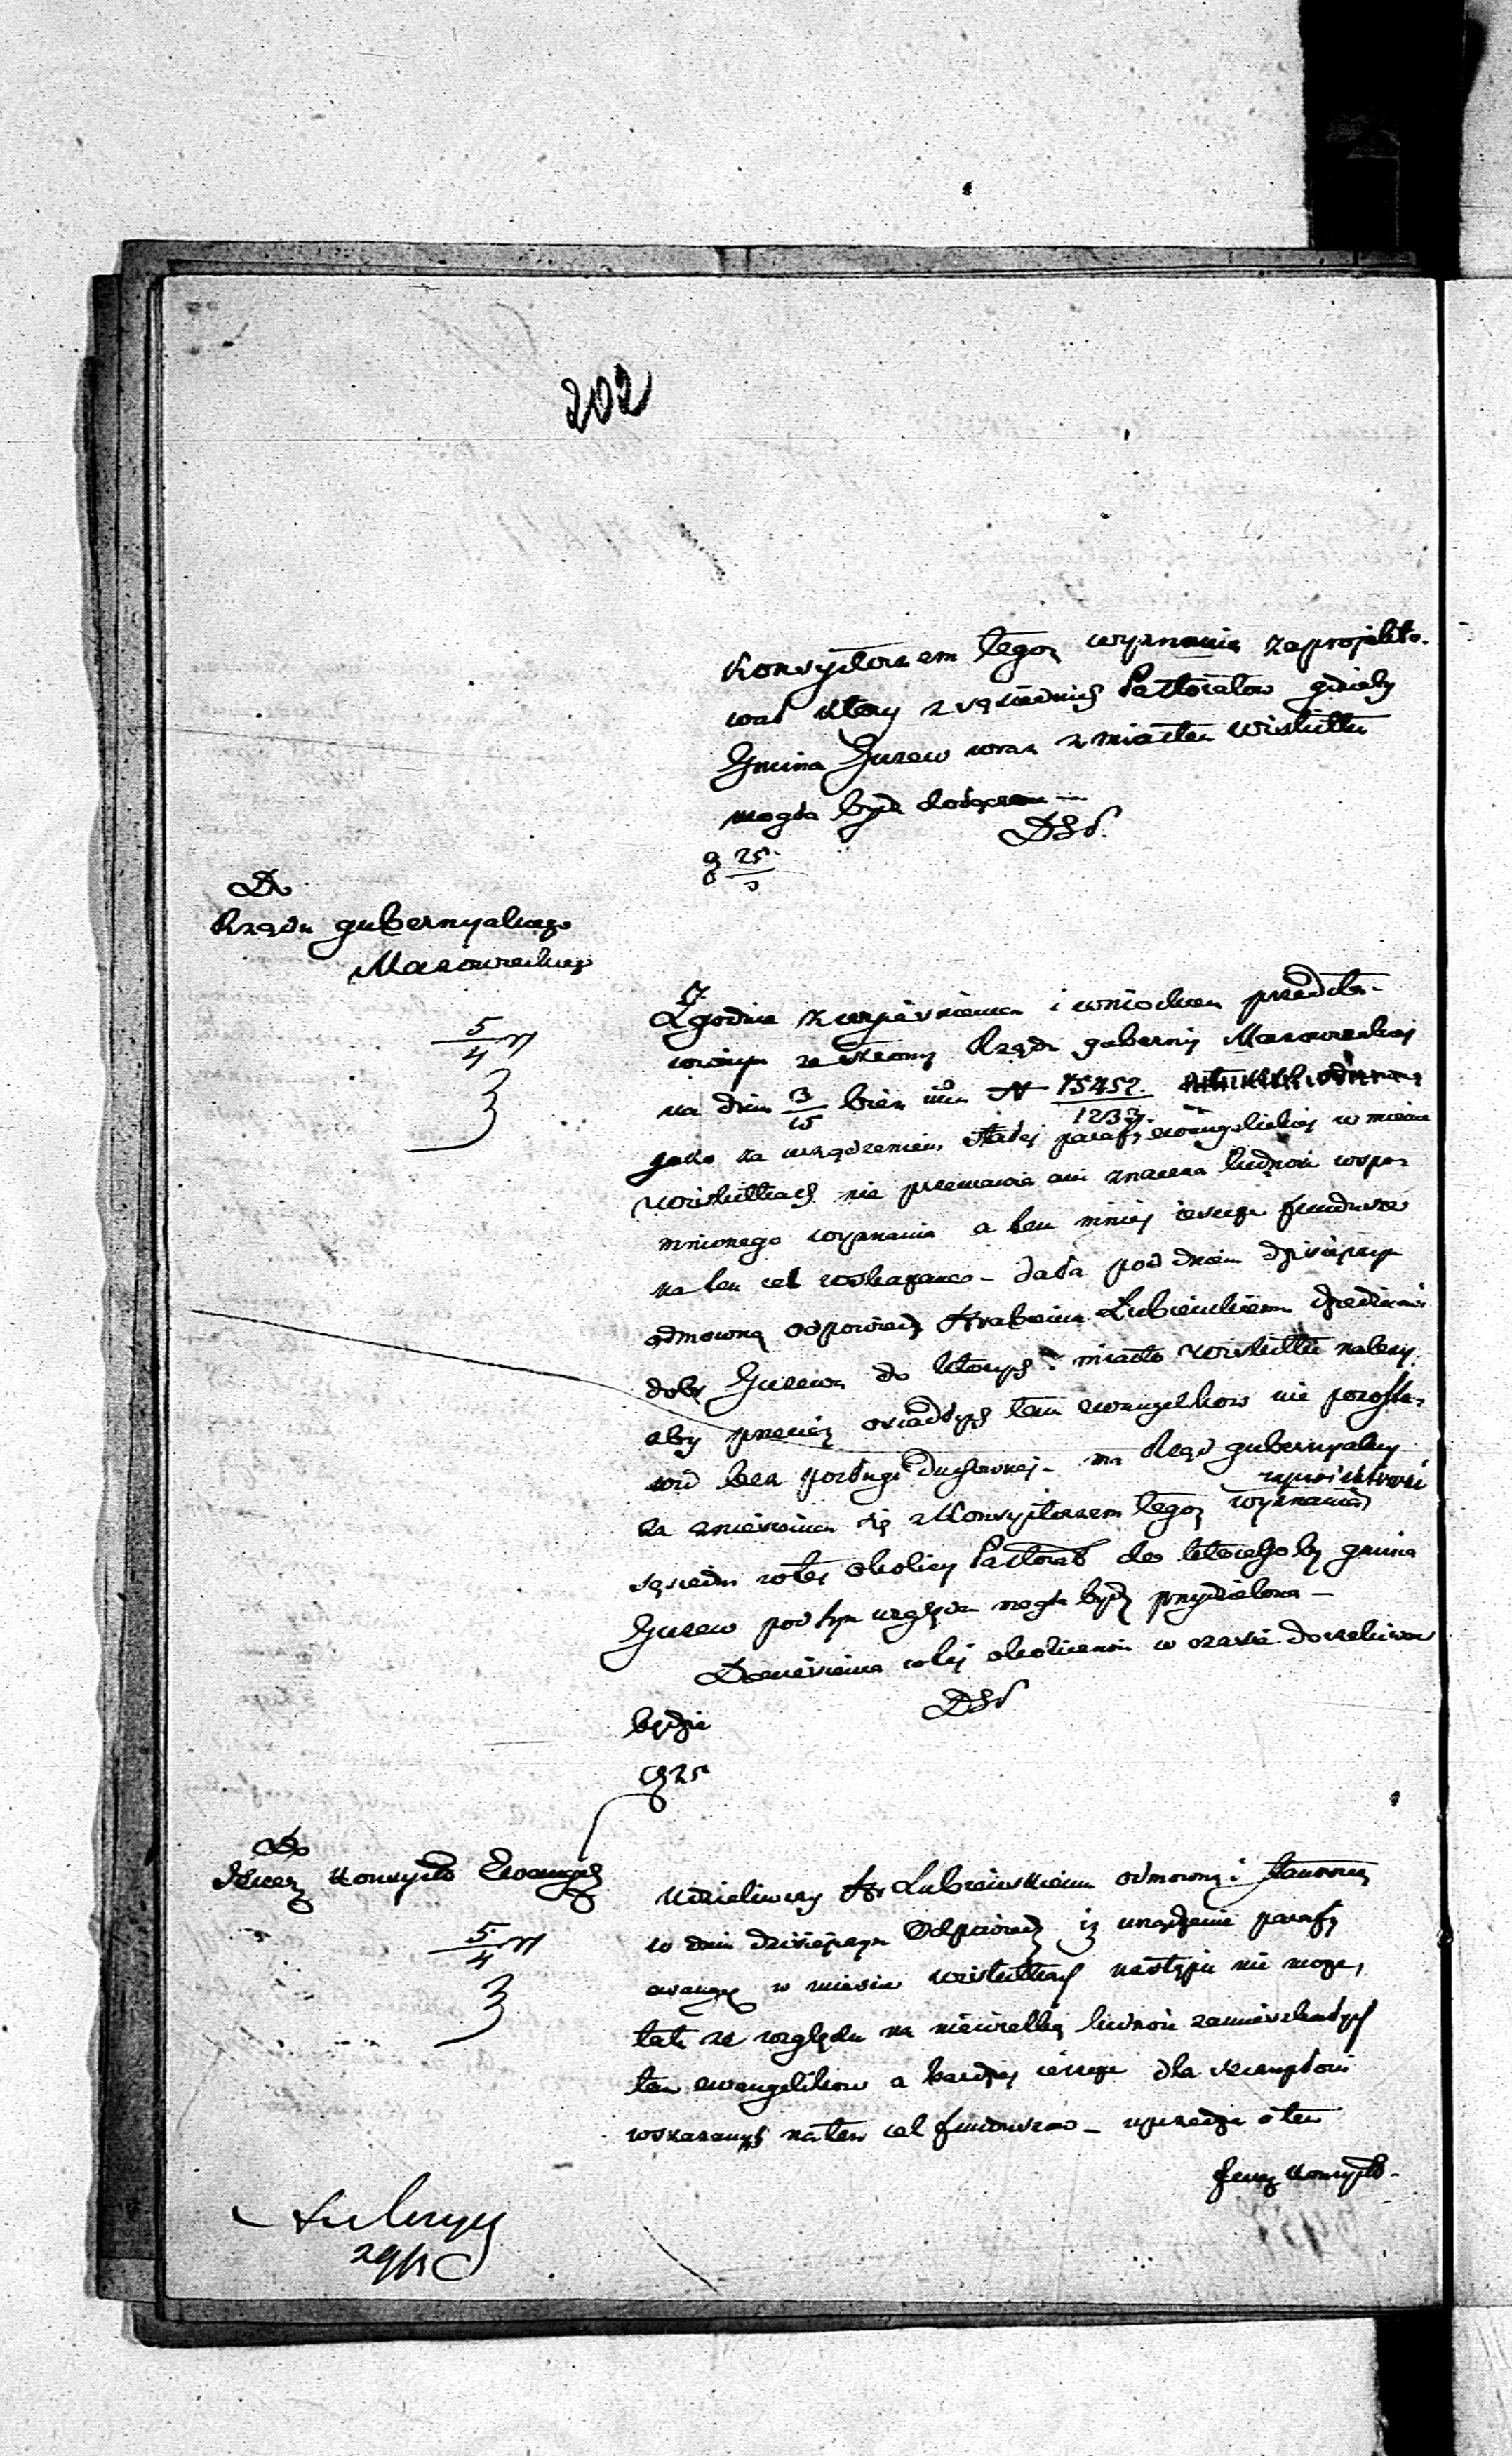 202
Konsystorzem tegoż wyznania zaprojekto-
wał który z sąsiednich Pastoratów gdzieby
Gmina Guzew wraz z miastem Wiskitki
mogła bydź dołączona —
DSS.
25
Do
Rządu gubernyalnego
Mazowieckiego
5/4
Zgodnie z wyjaśnieniem i wnioskiem przedsta-
wionym ze strony Rządu guberny Mazowieckiej
na dniu 3/15 bież. N 75452/1233.
jako za urządzeniem stałej parafy ewangelickiej w mieście
Wiskitkach nie przemawia ani znaczna ludność wspo-
mnionego wyznania a tem mniej jeszcze fundusze
na ten cel wskazane – dała pod dniem dzisiejszym
odmowną odpowiedź Hrabiemu Łubieńskiemu dziedzicowi
dóbr Guzewa do których i miasto Wiskitki należy.
aby przecież osiadłych tam ewangelików nie pozosta-
wić bez posługi duchownej – ma Rząd gubernyalny
za zniesieniem się z Konsystorzem tegoż wyznania
sąsiedni w tej okolicy Pastorat do któregoby gmina
Guzew pod tym względem mogła bydź przydzielona —
Doniesienia w tej okoliczności w czasie oczekiwać
będzie
DSS
25
Do
Jener. Konsyst. Ewangel.
5/4
Udzieliwszy Hr. Łubieńskiemu odmowną i stanowczą
w dniu dzisiejszym Odpowiedź iż urządzenie parafy
ewangel. w mieście Wiskitkach nastąpić nie może,
tak ze względu na niewielką ludność zamieszkałych
tam ewangelików a bardziej jeszcze dla szczupłości
wskazanych na ten cel funduszów – uprzedza o tem
Jener. Konsyst.